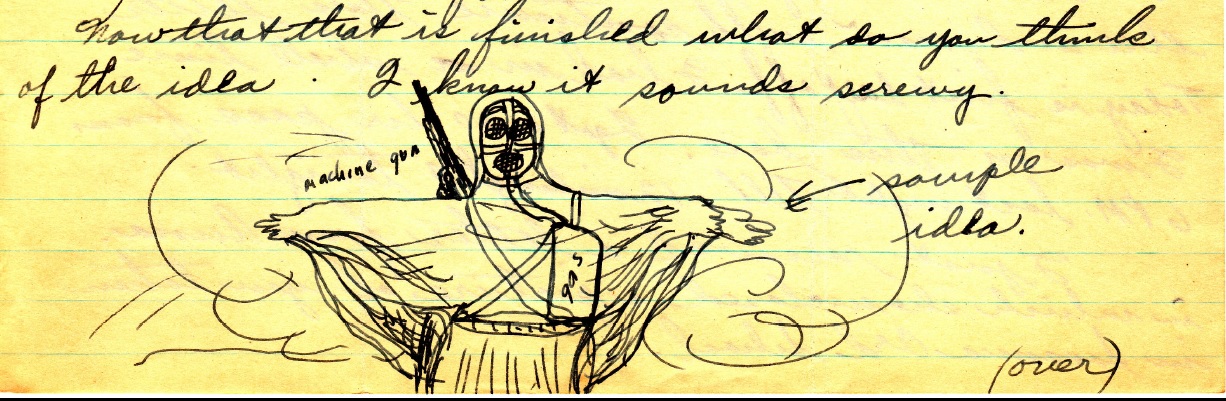 Now that that is finished what do you think
of the idea. I know it sounds screwy.
machine gun
sample
idea.
gas
(over)